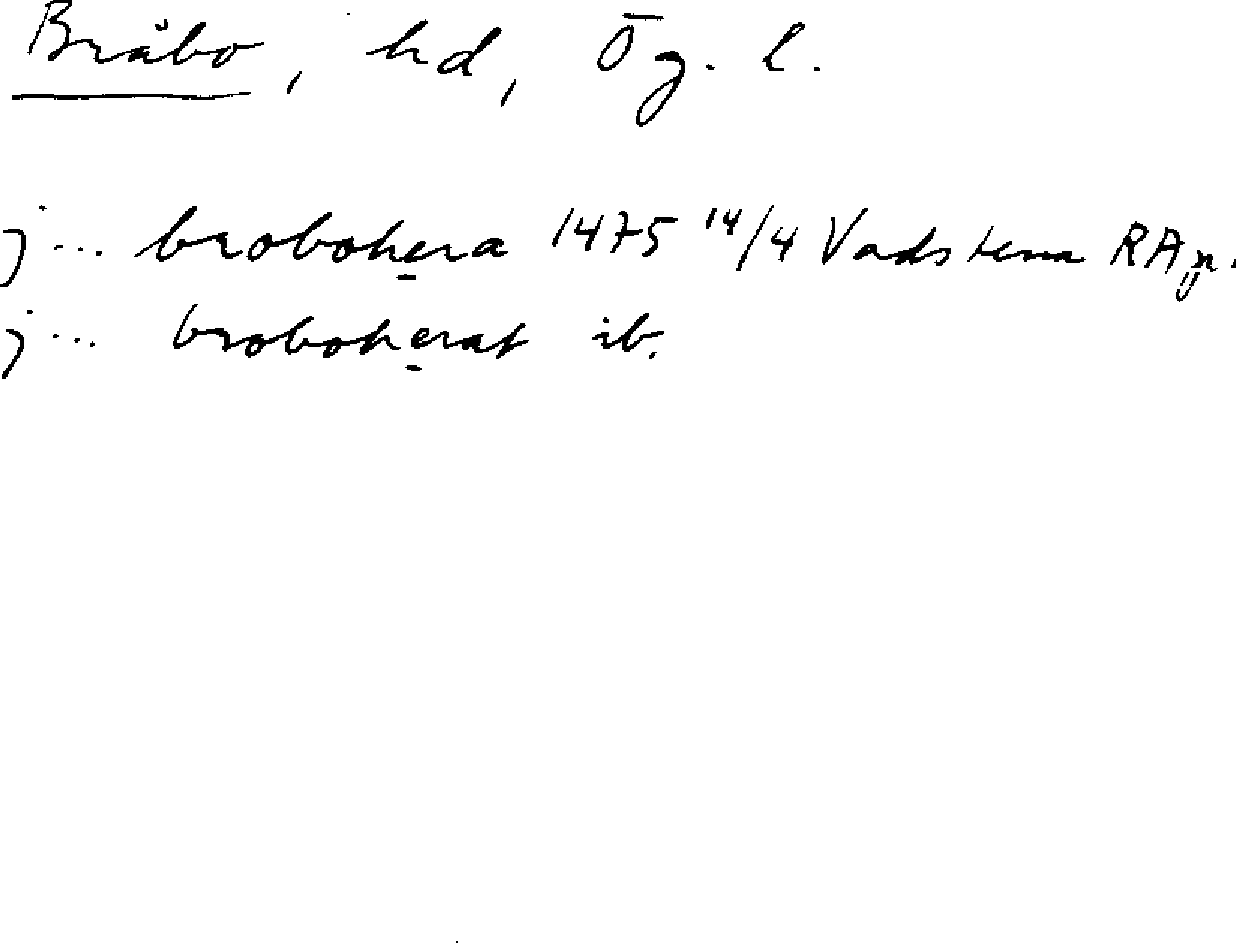 Bråbo, hd, Ög. l.
j... brobohera 1475 14/4 Vadstena RAp.
j... broboherat ib.